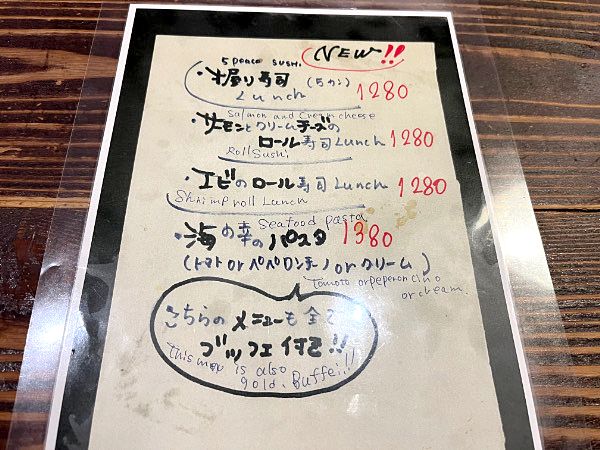 NEW!!
5 peace SUSHI
・握り寿司 (5カン)
Lunch 1280
Salmon and Cream cheese
・サーモンとクリームチーズの
ロール寿司Lunch 1280
Roll Sushi
・エビのロール寿司Lunch 1280
Shiimp roll Lunch
Seafood pasta
・海の幸のパスタ 1380
(トマト or ペペロンチーノ or クリーム)
Tomoto or peperoncino
or cream.
こちらのメニューも全て
ブッフェ付き!!
This is also
Buffei!!